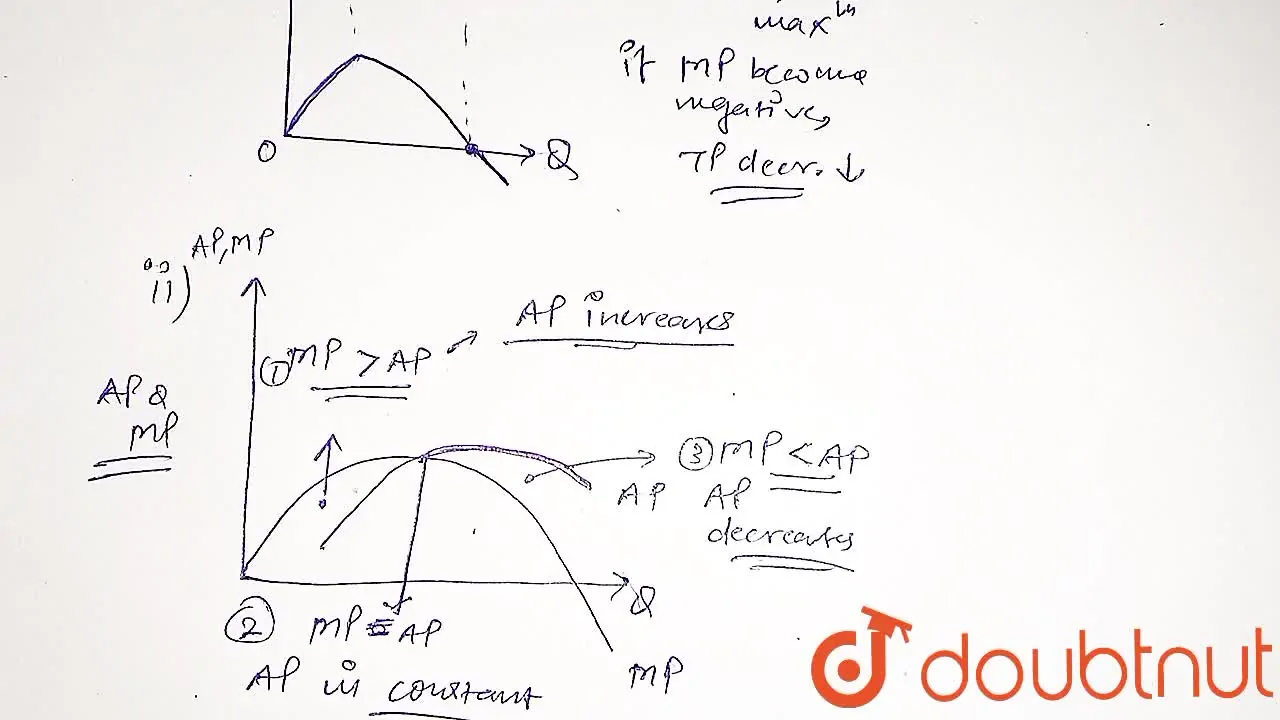 maxᵐ
if MP become
negative,
TP decr. ↓
O
Q
ii)
AP, MP
AP increases
① MP > AP
AP &
MP
③ MP < AP
AP
AP
decreases
Q
② MP = AP
AP is constant
MP
doubtnut